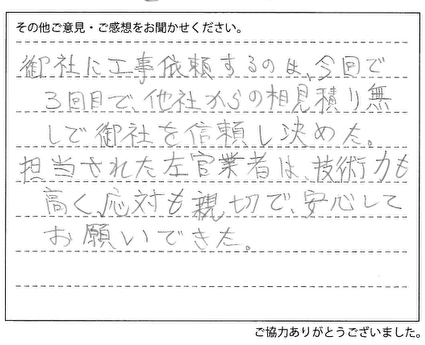 その他ご意見・ご感想をお聞かせください。
御社に工事依頼するのは、今回で
3回目で、他社からの相見積り無
しで御社を信頼し決めた。
担当された左官業者は、技術力も
高く、応対も親切で、安心して
お願いできた。
ご協力ありがとうございました。